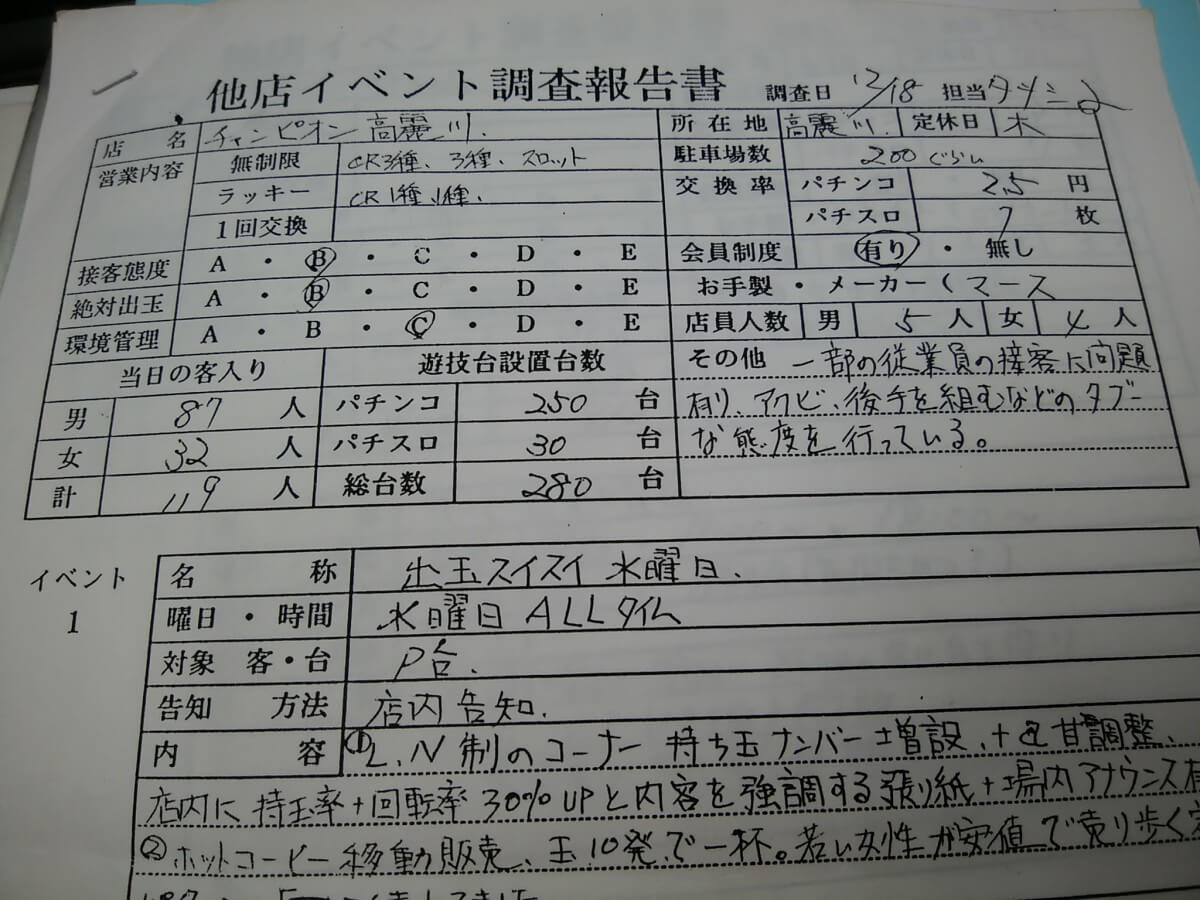 他店イベント調査報告書 調査日 12/18 担当 タツミ
店名 チャンピオン高麗川. 所在地 高麗川. 定休日 木
営業内容 無制限 CR3種、3種、スロット 駐車場数 200ぐらい
ラッキー CR1種、1種、 交換率 パチンコ 2.5 円
1回交換 パチスロ 7 枚
接客態度 A・B・C・D・E 会員制度 有り・無し
絶対出玉 A・B・C・D・E お手製・メーカー(マース
環境管理 A・B・C・D・E 店員人数 男 5人 女 4人
当日の客入り 遊技台設置台数 その他 一部の従業員の接客に問題
男 87 人 パチンコ 250 台 有り、アクビ、後手を組むなどのタブー
女 32 人 パチスロ 30 台 な態度を行っている。
計 119 人 総台数 280 台
イベント 1
名称 出玉スイスイ水曜日.
曜日・時間 水曜日 ALLタイム
対象 客・台 P台.
告知 方法 店内告知.
内容 ①L.N制のコーナー 持ち玉ナンバー増設、+ 甘調整、
店内に持玉率+回転率30%UPと内容を強調する張り紙+場内アナウンス
②ホットコーヒー移動販売、玉10発で一杯。若い女性が安値で売り歩く